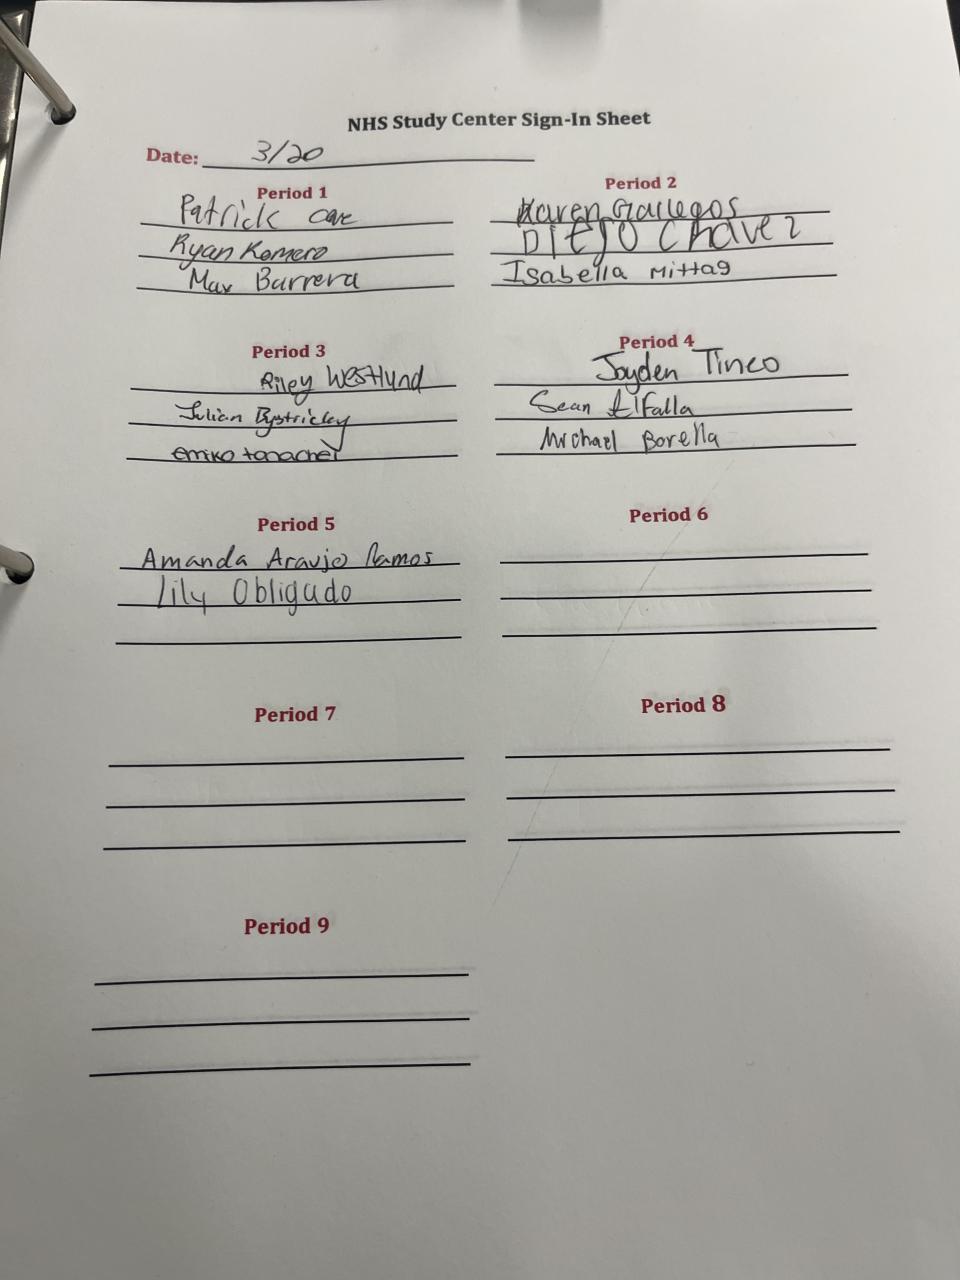 NHS Study Center Sign-In Sheet
Date: 3/20
Period 1
Patrick
Ryan Romero
Max Barrera
Period 2
Karen Gallegos
Diego Chavez
Isabella Mittag
Period 3
Riley Westlund
Julian Bystricky
emiko
Period 4
Jayden Tineo
Sean ElFalla
Michael Borella
Period 5
Amanda Araujo Ramos
Lily Obligado
Period 6
Period 7
Period 8
Period 9